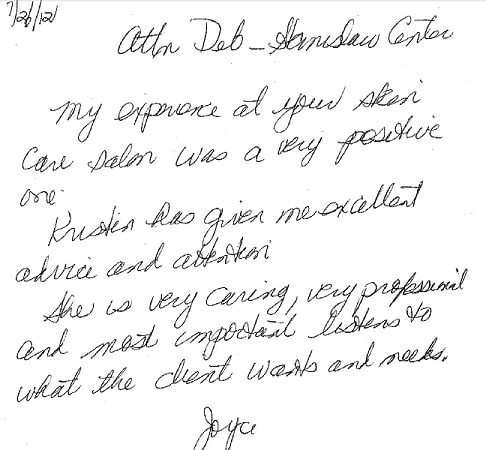 7/26/12
Attn Deb - Stanislaw Center
My experience at your skin
Care salon was a very positive
one.
Kristen has given me excellent
advice and attention
She is very caring, very professional
and most important listens to
what the client wants and needs.
Joyce